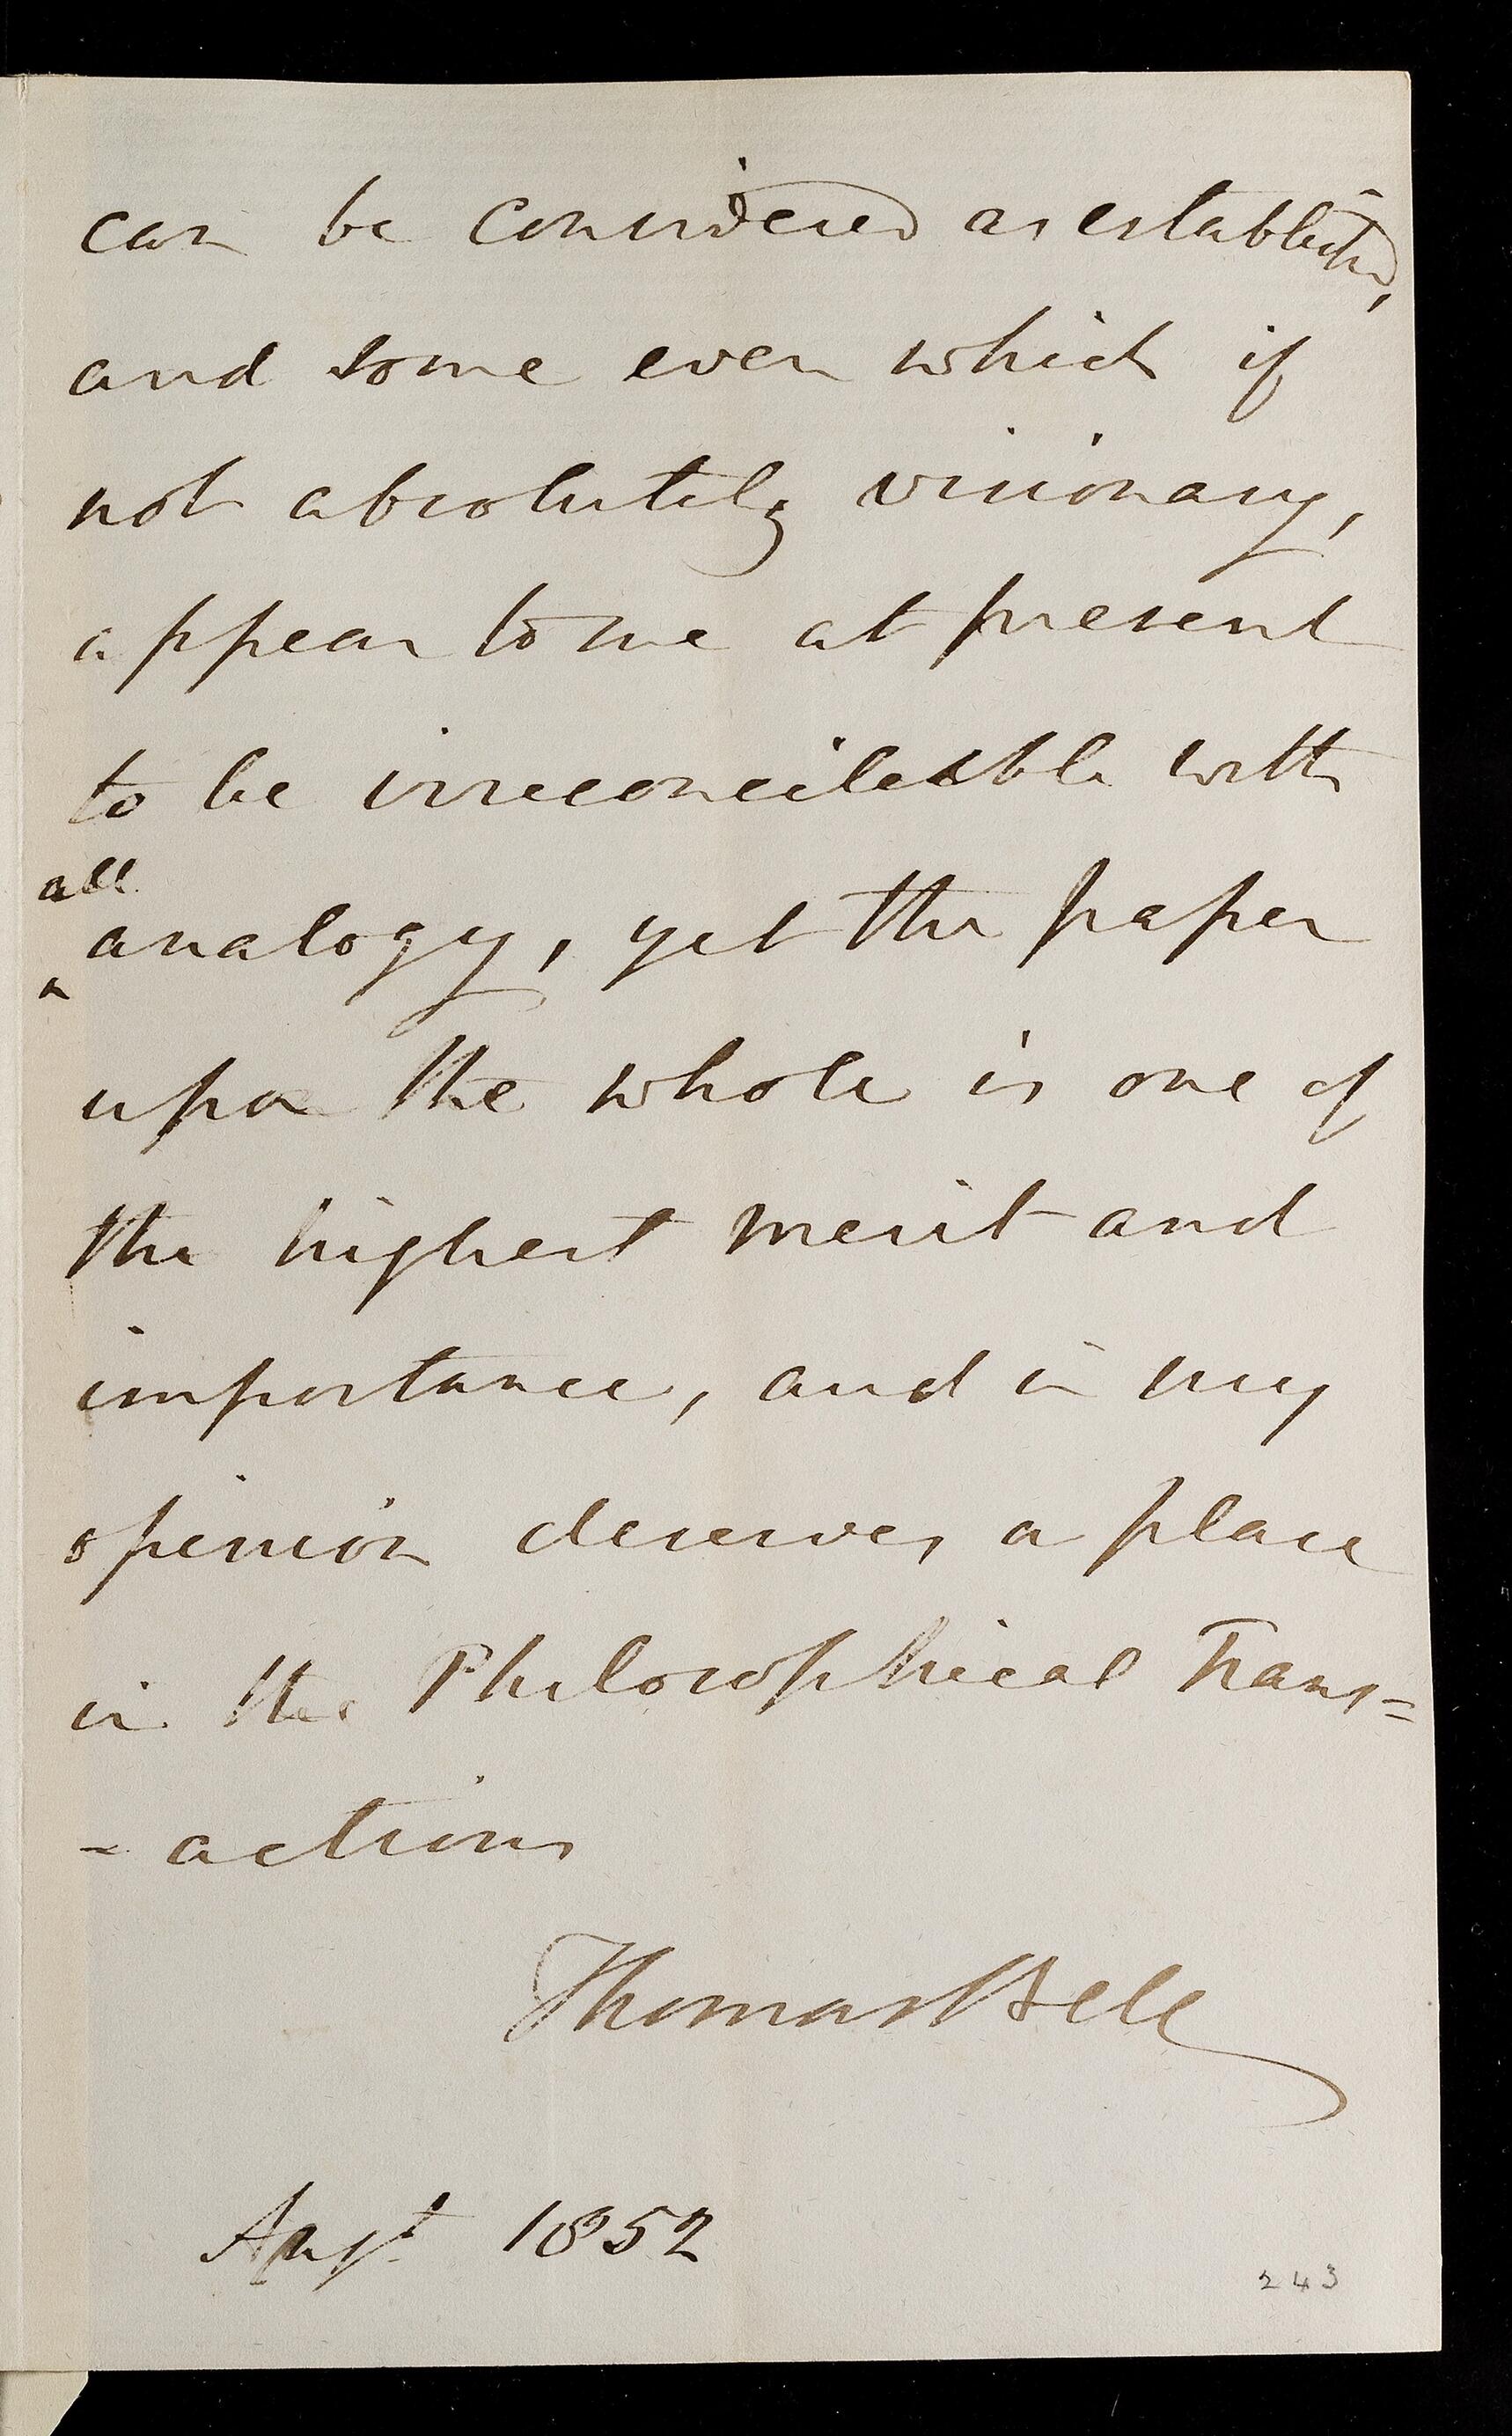 can be considered as established,
and some even which if
not absolutely visionary,
appear to me at present
to be irreconcileable with
all
analogy, yet the paper
upon the whole is one of
the highest merit and
importance, and in my
opinion deserves a place
in the Philosophical Trans=
-actions
Thomas Bell
Augt. 1852
243